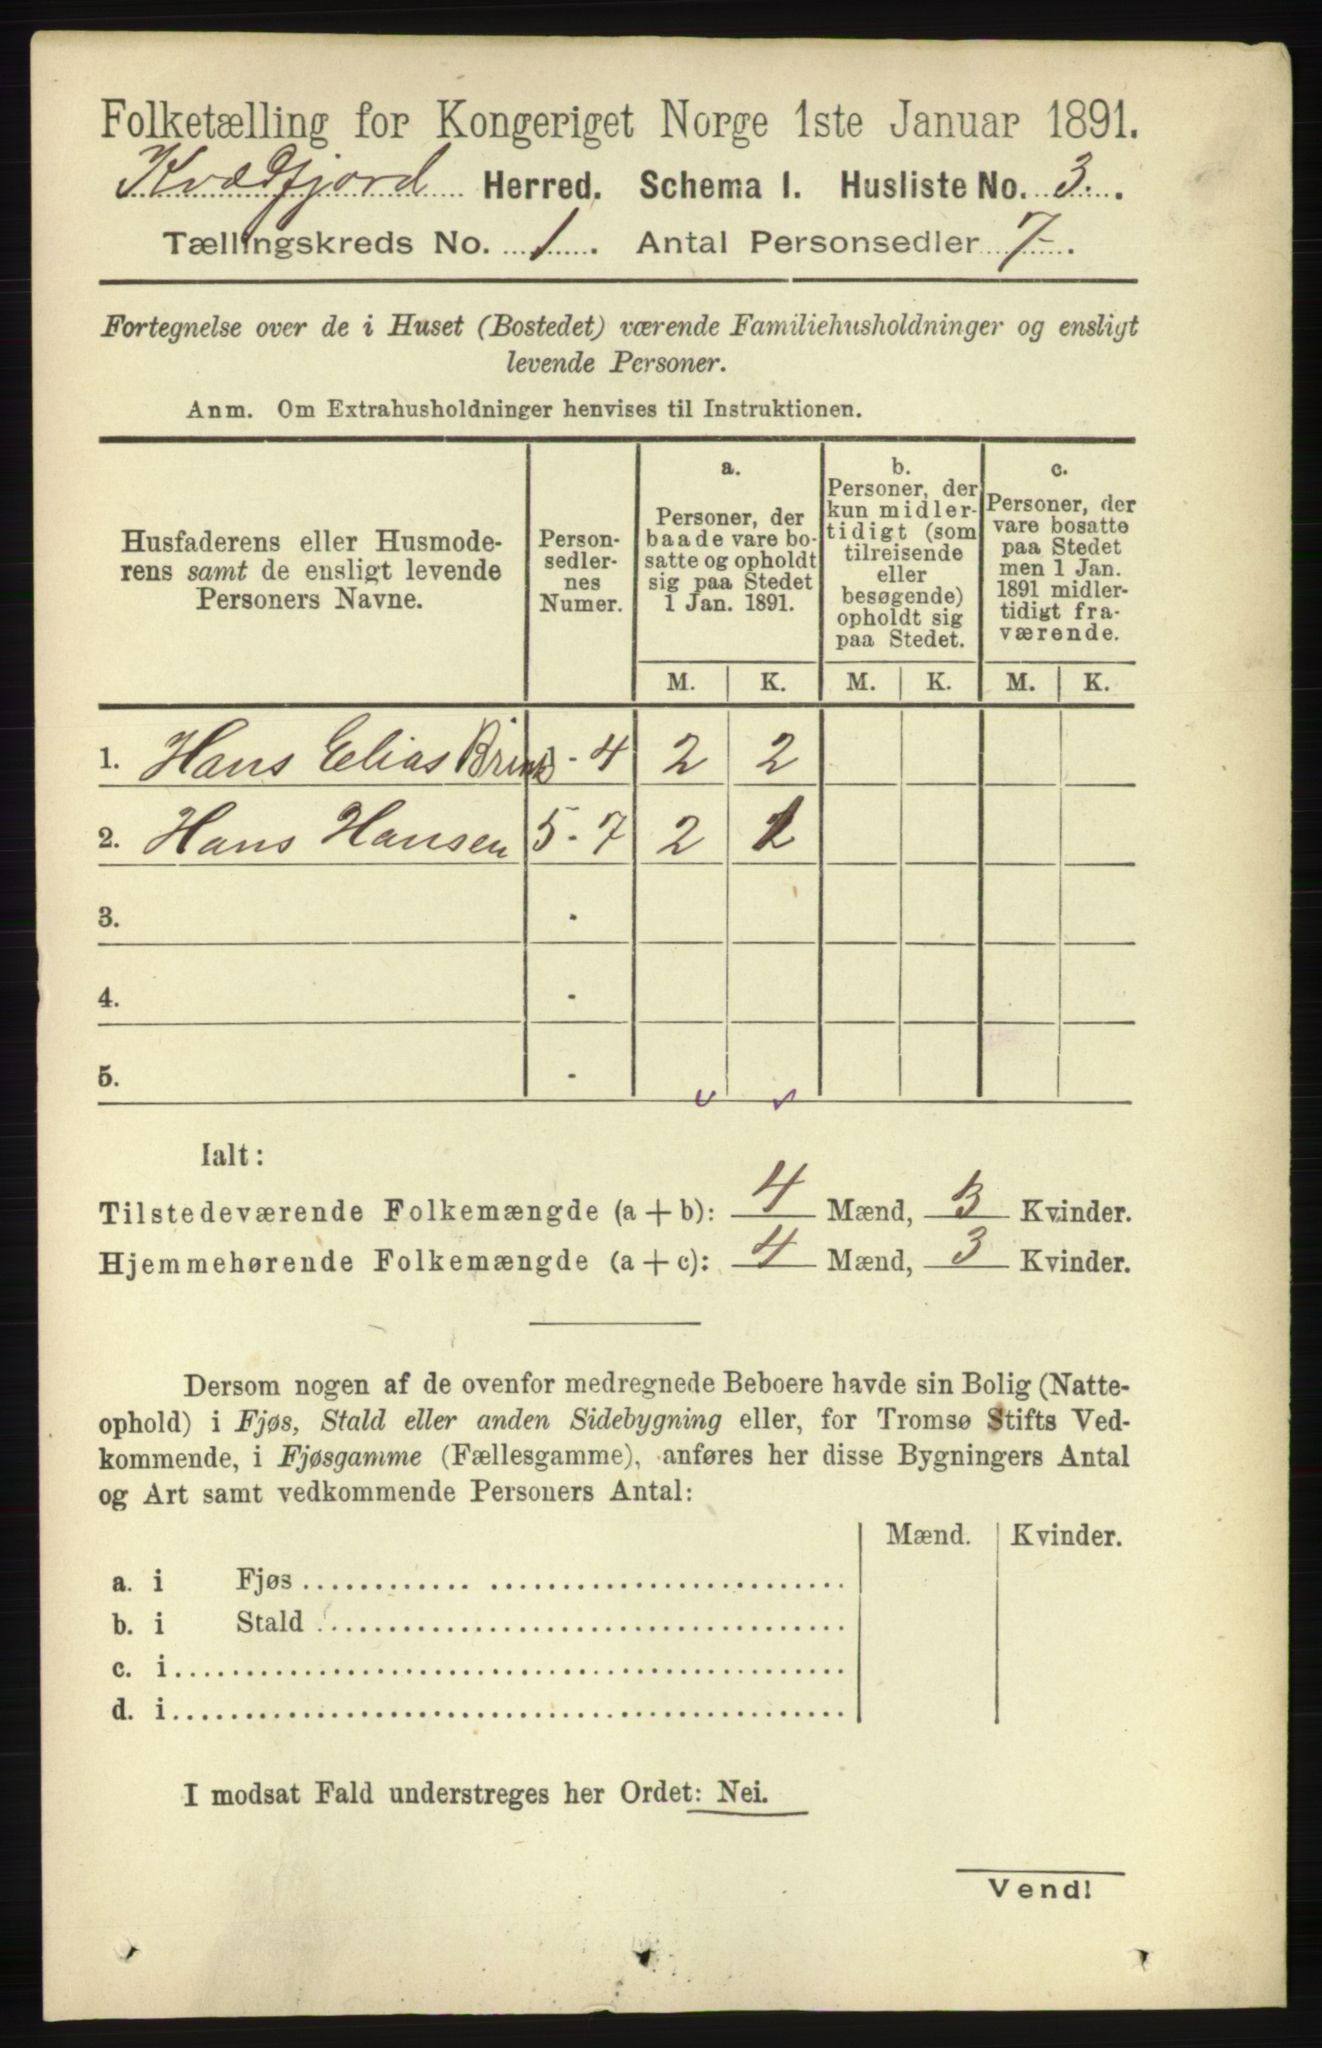 Folketælling for Kongeriget Norge 1ste Januar 1891.
Kvædfjord Herred. Schema I. Husliste No. 3.
Tællingskreds No. 1. Antal Personsedler 7.
Fortegnelse over de i Huset (Bostedet) værende Familiehusholdninger og ensligt
levende Personer.
Anm. Om Extrahusholdninger henvises til Instruktionen.
Husfaderens eller Husmode-
rens samt de ensligt levende
Personers Navne.
Person-
sedler-
nes
Numer.
a.
Personer, der
baade vare bo-
satte og opholdt
sig paa Stedet
1 Jan. 1891.
b.
Personer, der
kun midler-
tidigt (som
tilreisende
eller
besøgende)
opholdt sig
paa Stedet.
c.
Personer, der
vare bosatte
paa Stedet
men 1 Jan.
1891 midler-
tidigt fra-
værende.
M. K. M. K. M. K.
1. Hans Elias - 4 2 2
2. Hans Hansen 5 - 7 2 1
3. -
4. -
5. -
Ialt:
Tilstedeværende Folkemængde (a + b): 4 Mænd, 3 Kvinder.
Hjemmehørende Folkemængde (a + c): 4 Mænd, 3 Kvinder.
Dersom nogen af de ovenfor medregnede Beboere havde sin Bolig (Natte-
ophold) i Fjøs, Stald eller anden Sidebygning eller, for Tromsø Stifts Ved-
kommende, i Fjøsgamme (Fællesgamme), anføres her disse Bygningers Antal
og Art samt vedkommende Personers Antal:
Mænd. Kvinder.
a. i Fjøs
b. i Stald
c. i
d. i
I modsat Fald understreges her Ordet: Nei.
Vend!